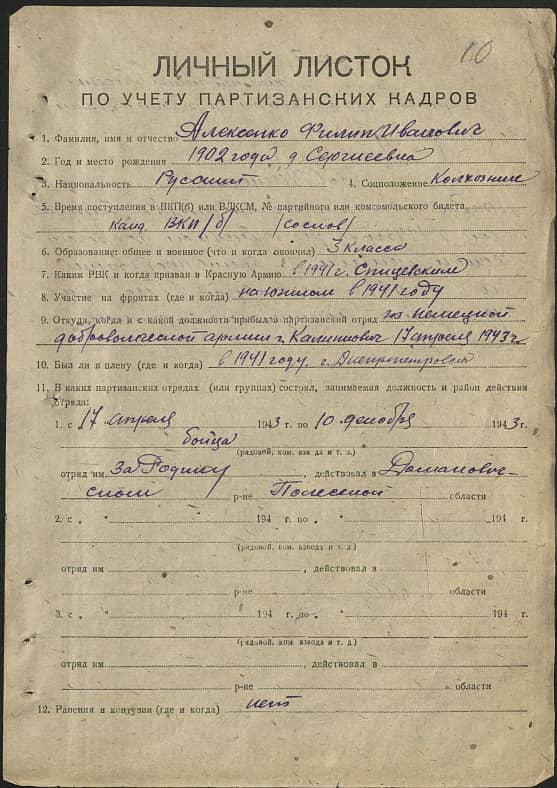 10
ЛИЧНЫЙ ЛИСТОК
ПО УЧЕТУ ПАРТИЗАНСКИХ КАДРОВ
1. Фамилия, имя и отчество Алексенко Филип Иванович
2. Год и место рождения 1902 года д Сергиевка
3. Национальность Русский 4. Соцположение Колхозник
5. Время поступления в ВКП(б) или ВЛКСМ, № партийного или комсомольского билета,
Канд. ВКП /б/ /сослов/
6. Образование: общее и военное (что и когда окончил) 3 класса
7. Каким РВК и когда призван в Красную Армию в 1941 г. Спицевским
8. Участие на фронтах (где и когда) на южном в 1941 году
9. Откуда, когда и с какой должности прибыл в партизанский отряд из немецкой
добровольческой армии г. Калинкович 17 апреля 1943 г.
10. Был ли в плену (где и когда) в 1941 году г. Днепропетровск
11. В каких партизанских отрядах (или группах) состоял, занимаемая должность и район действия
отряда:
1. с 17 апреля 1943 г. по 10 декабря 1943 г.
бойца
(рядовой, ком. взвода и т. д.)
отряд им За Родину, действовал в Домановичс-
ском р-не Полесской области
2. с " 194 г. по " 194 г.
(рядовой, ком. взвода и т. д.)
отряд им , действовал в
р-не области
3. с " 194 г. по " 194 г.
(рядовой, ком. взвода и т. д.)
отряд им , действовал в
р-не области
12. Ранения и контузии (где и когда) нет